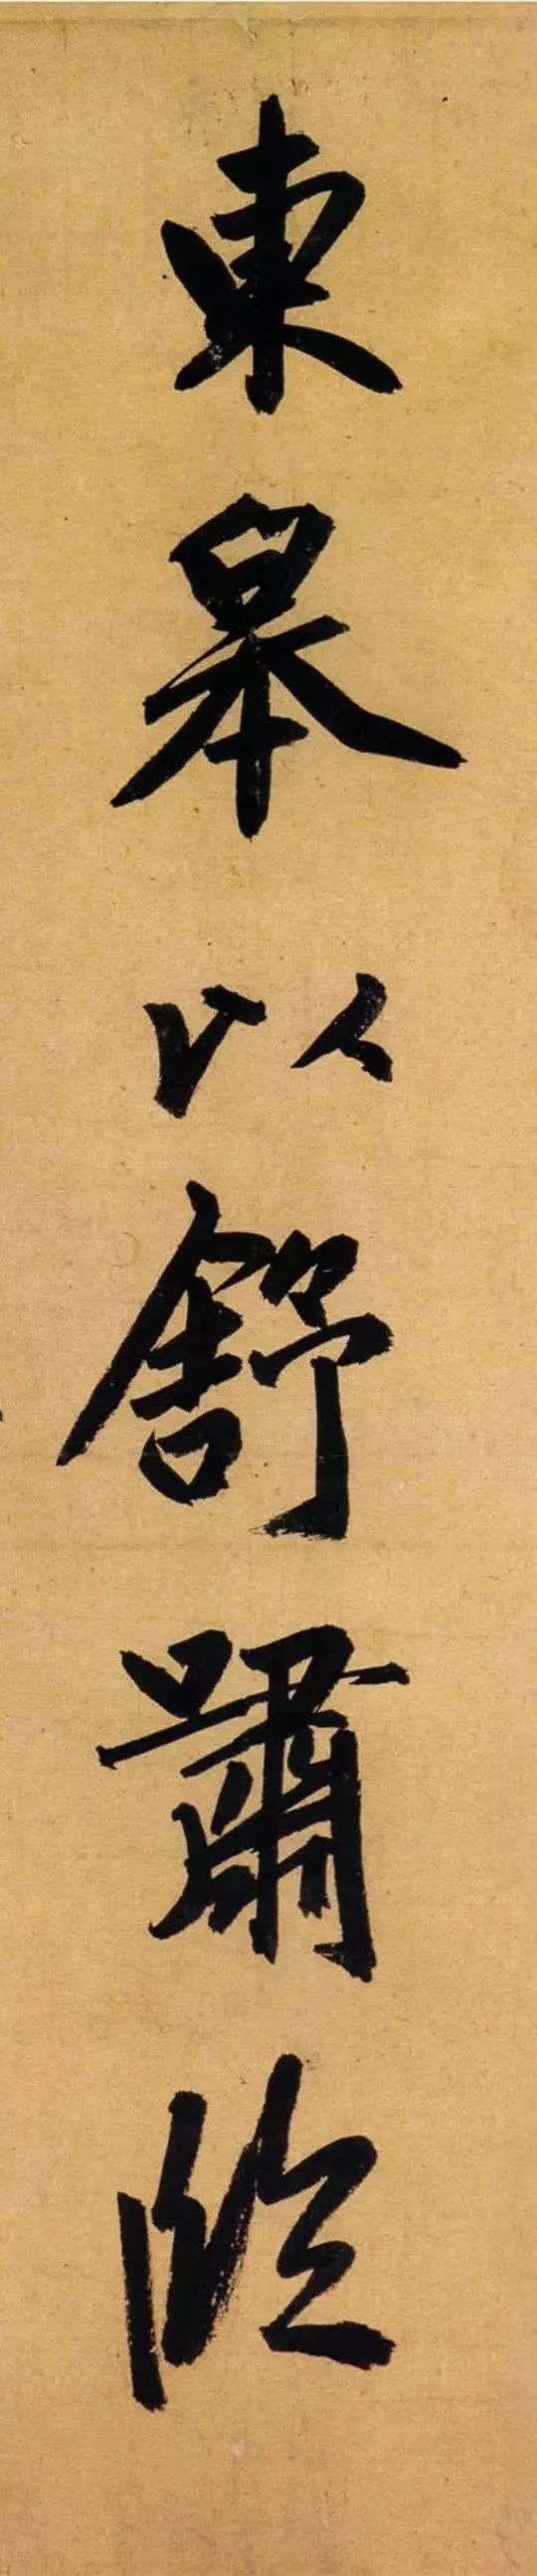 東皋以舒嘯臨